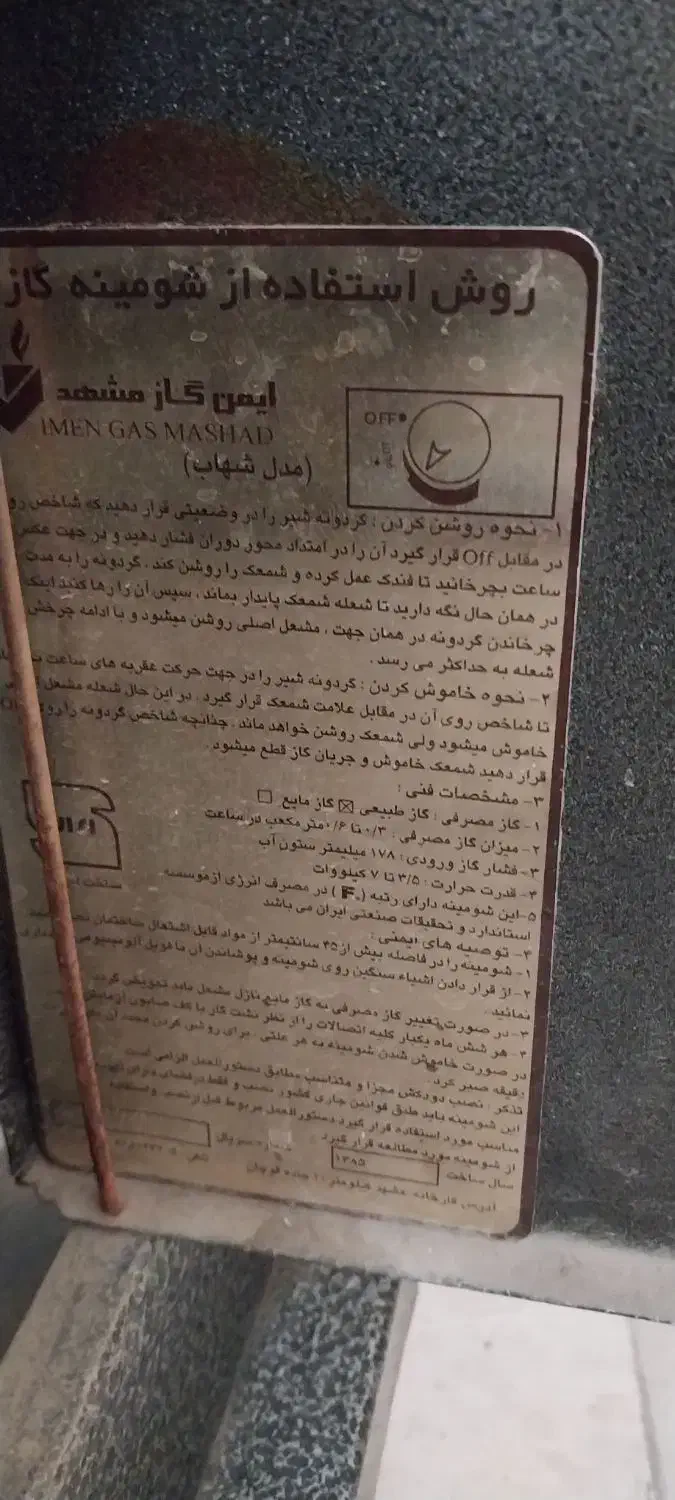 روش استفاده از شومینه گاز
ایمن گاز مشهد
IMEN GAS MASHAD
(مدل شهاب)
OFF
PILOT
۱- نحوه روشن کردن : گردونه شیر را در وضعیتی قرار دهید که شاخص رو
در مقابل Off قرار گیرد آن را در امتداد محور دوران فشار دهید و در جهت عکس
ساعت بچرخانید تا فندک عمل کرده و شمعک را روشن کند . گردونه را به مدت
در همان حال نگه دارید تا شعله شمعک پایدار بماند ، سپس آن را رها کنید اینک
چرخاندن گردونه در همان جهت ، مشعل اصلی روشن میشود و با ادامه چرخش
شعله به حداکثر می رسد .
۲- نحوه خاموش کردن : گردونه شیر را در جهت حرکت عقربه های ساعت
تا شاخص روی آن در مقابل علامت شمعک قرار گیرد . در این حال شعله مشعل
خاموش میشود ولی شمعک روشن خواهد ماند . چنانچه شاخص گردونه را روی
قرار دهید شمعک خاموش و جریان گاز قطع میشود .
۳- مشخصات فنی :
۱- گاز مصرفی : گاز طبیعی ☒ گاز مایع ☐
۲- میزان گاز مصرفی : ۰/۳ تا ۰/۶ متر مکعب در ساعت
۳- فشار گاز ورودی : ۱۷۸ میلیمتر ستون آب
۴- قدرت حرارت : ۳/۵ تا ۷ کیلووات
۵- این شومینه دارای رتبه (F) در مصرف انرژی از موسسه
استاندارد و تحقیقات صنعتی ایران می باشد
۴- توصیه های ایمنی :
۱- شومینه را در فاصله بیش از ۴۵ سانتیمتر از مواد قابل اشتعال ساختمان
۲- از قرار دادن اشیاء سنگین روی شومینه و پوشاندن آن با فویل آلومینیومی
نمائید .
۳- در صورت تغییر گاز مصرفی به گاز مایع نازل مشعل باید تعویض گردد
۴- هر شش ماه یکبار کلیه اتصالات را از نظر نشت گاز با کف صابون آزمایش
در صورت خاموش شدن شومینه به هر علتی ، برای روشن کردن مجدد آن
دقیقه صبر کرد .
تذکر : نصب دودکش مجزا و متناسب مطابق دستورالعمل الزامی است
این شومینه باید طبق قوانین جاری کشور نصب و فقط در فضای دارای
مناسب مورد استفاده قرار گیرد دستورالعمل مربوط قبل از نصب و استفاده
از شومینه مورد مطالعه قرار گیرد .
سال ساخت ۱۳۸۵ شماره سریال
آدرس کارخانه : مشهد کیلومتر ۱۰ جاده قوچان تلفن